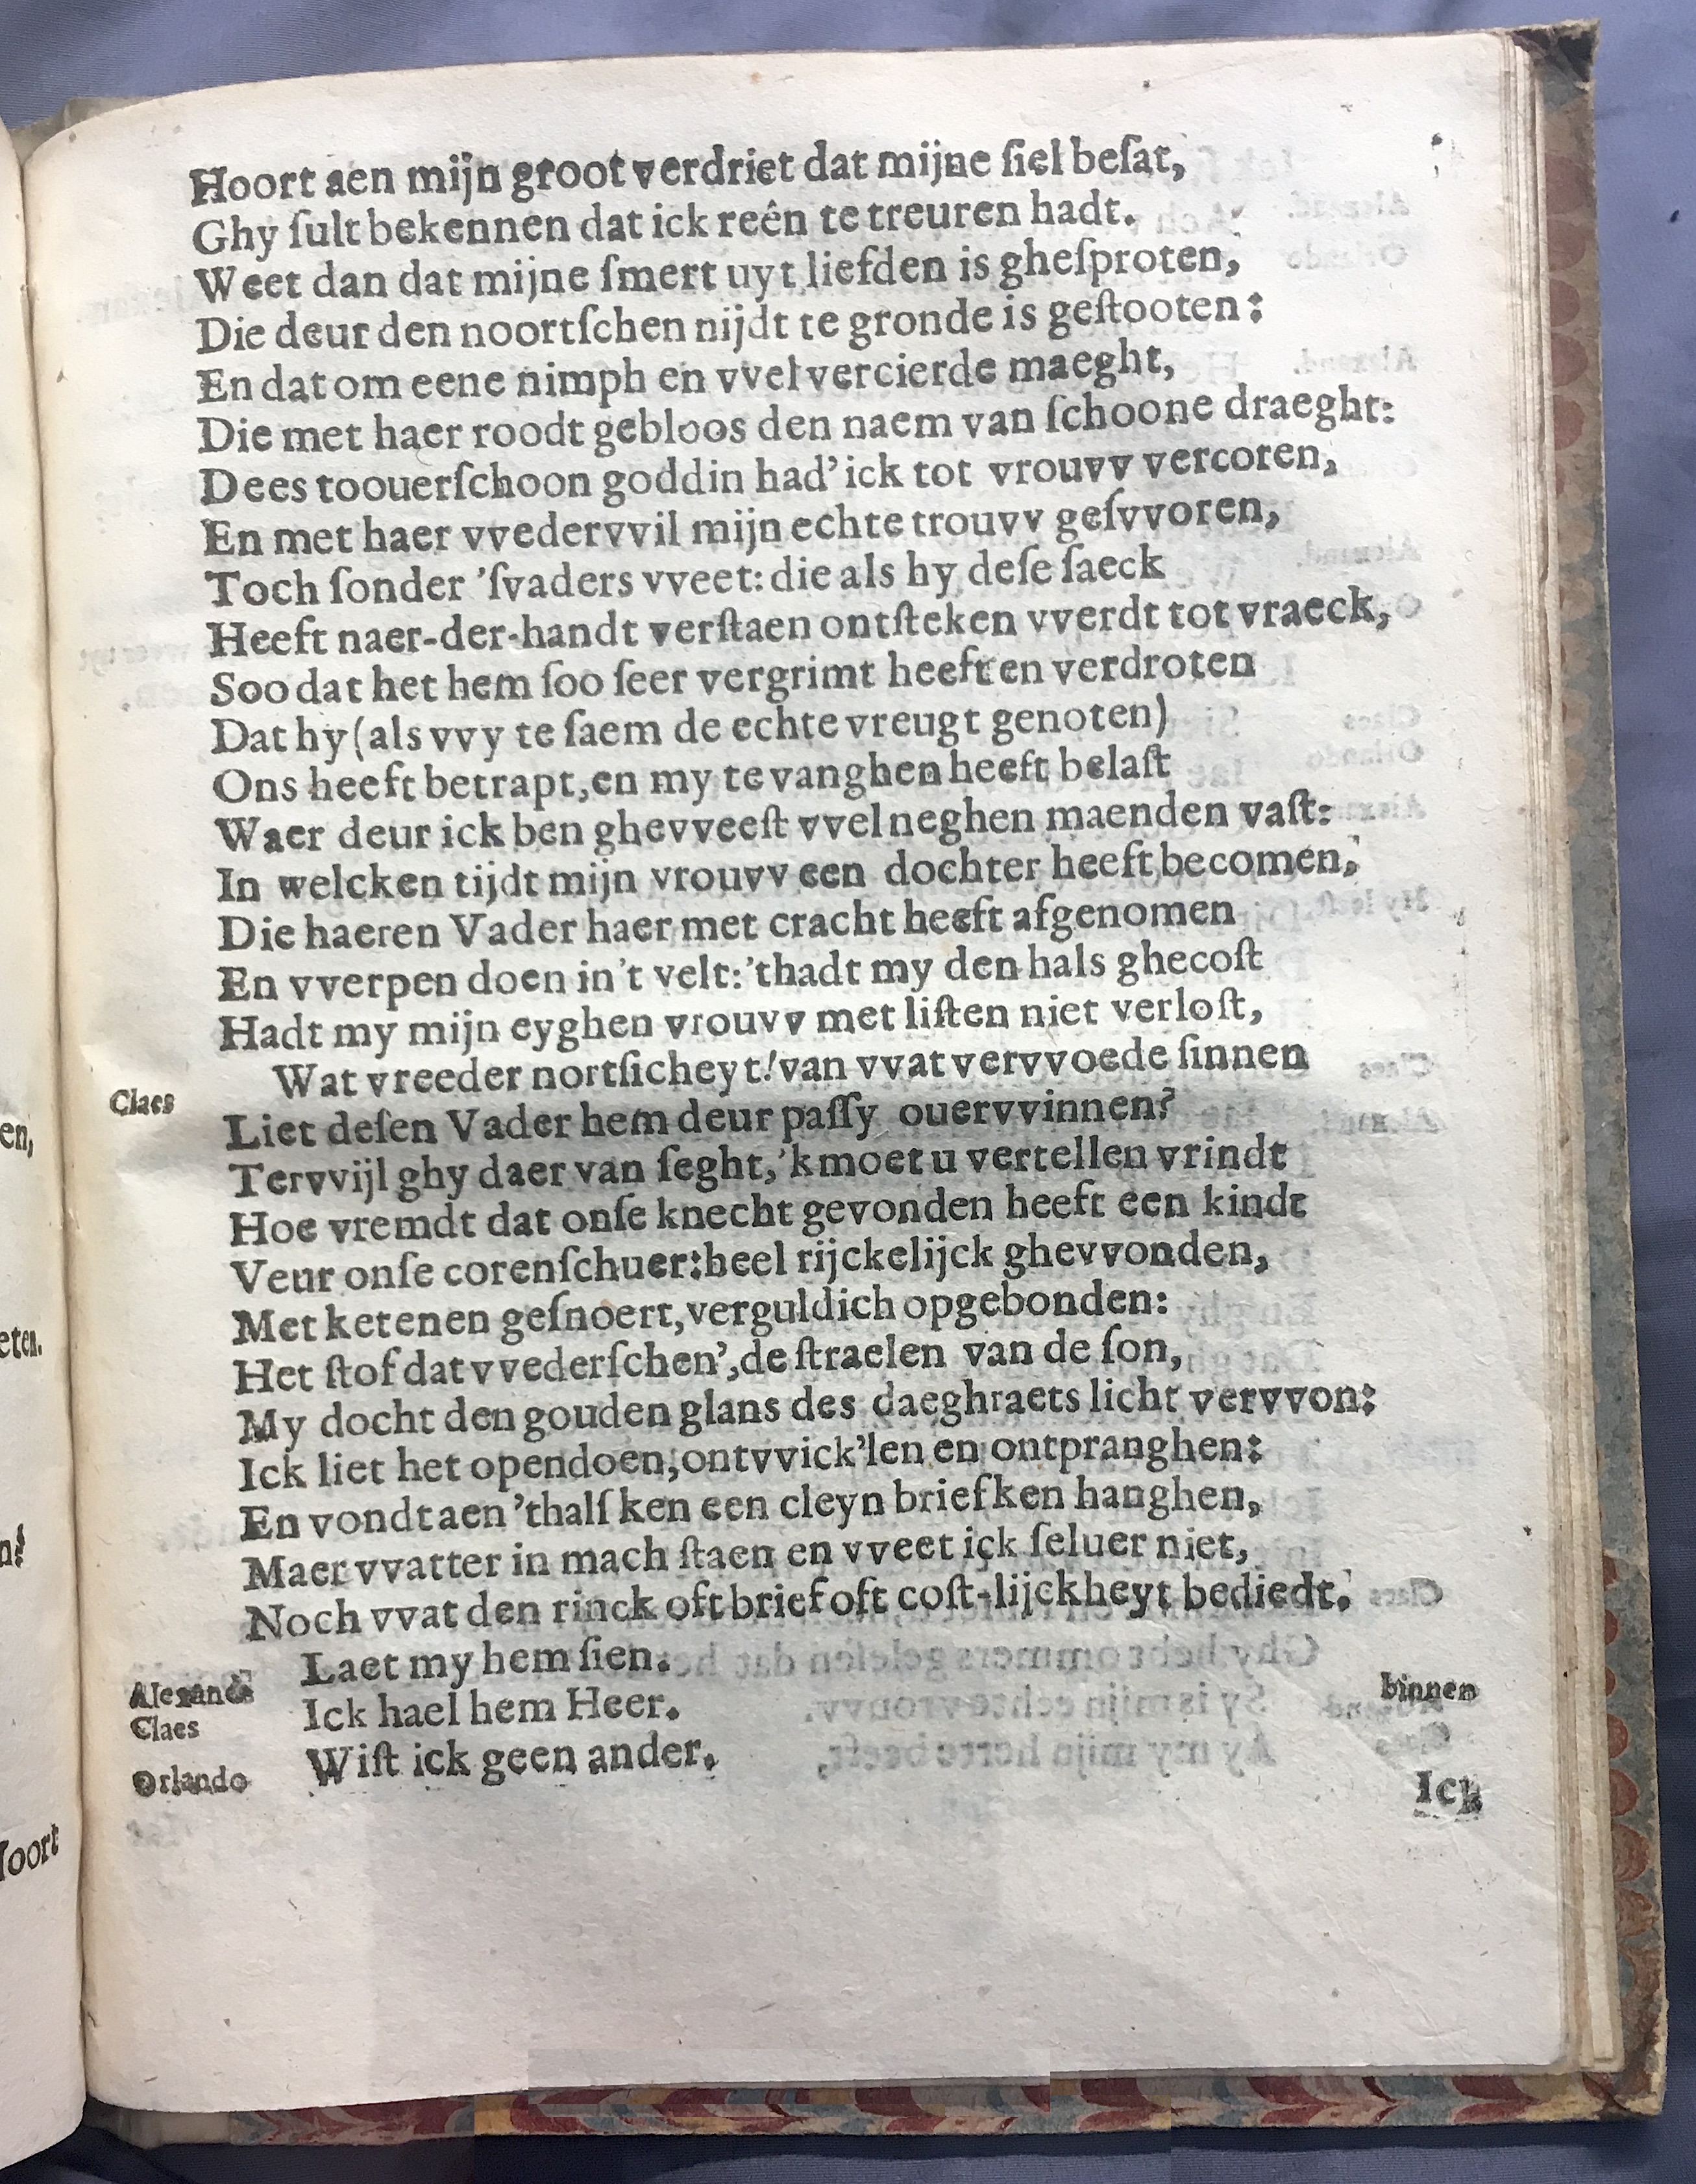 Hoort aen mijn groot verdriet dat mijne ſiel beſat,
Ghy ſult bekennen dat ick reên te treuren hadt.
Weet dan dat mijne ſmert uyt liefden is gheſproten,
Die deur den noortſchen nijdt te gronde is geſtooten:
En dat om eene nimph en vvel vercierde maeght,
Die met haer roodt gebloos den naem van ſchoone draeght:
Dees toouerſchoon goddin had’ ick tot vrouvv vercoren,
En met haer vvedervvil mijn echte trouvv geſvvoren,
Toch ſonder ’ſvaders vveet: die als hy deſe ſaeck
Heeft naer-der-handt verſtaen ontſteken vverdt tot vraeck,
Soo dat het hem ſoo ſeer vergrimt heeft en verdroten
Dat hy (als vvy te ſaem de echte vreugt genoten)
Ons heeft betrapt, en my te vanghen heeft belaſt
Waer deur ick ben ghevveeſt vvel neghen maenden vaſt:
In welcken tijdt mijn vrouvv een dochter heeft becomen,
Die haeren Vader haer met cracht heeft afgenomen
En vverpen doen in’t velt: ’thadt my den hals ghecoſt
Hadt my mijn eyghen vrouvv met liſten niet verloſt,
Claes Wat vreeder nortſicheyt! van vvat vervvoede ſinnen
Liet deſen Vader hem deur paſſy ouervvinnen?
Tervvijl ghy daer van ſeght, ’k moet u vertellen vrindt
Hoe vremdt dat onſe knecht gevonden heeft een kindt
Veur onſe corenſchuer: heel rijckelijck ghevvonden,
Met ketenen geſnoert, verguldich opgebonden:
Het ſtof dat vvederſchen’, de ſtraelen van de ſon,
My docht den gouden glans des daeghraets licht vervvon:
Ick liet het opendoen, ontvvick’len en ontpranghen:
En vondt aen ’thalſken een cleyn briefken hanghen,
Maer vvatter in mach ſtaen en vveet ick ſeluer niet,
Noch vvat den rinck oft brief oft coſt-lijckheyt bediedt.
Alexand. Laet my hem ſien.
Claes Ick hael hem Heer. binnen
Orlando Wiſt ick geen ander.
Ick
en,
eten.
n!
Hoort